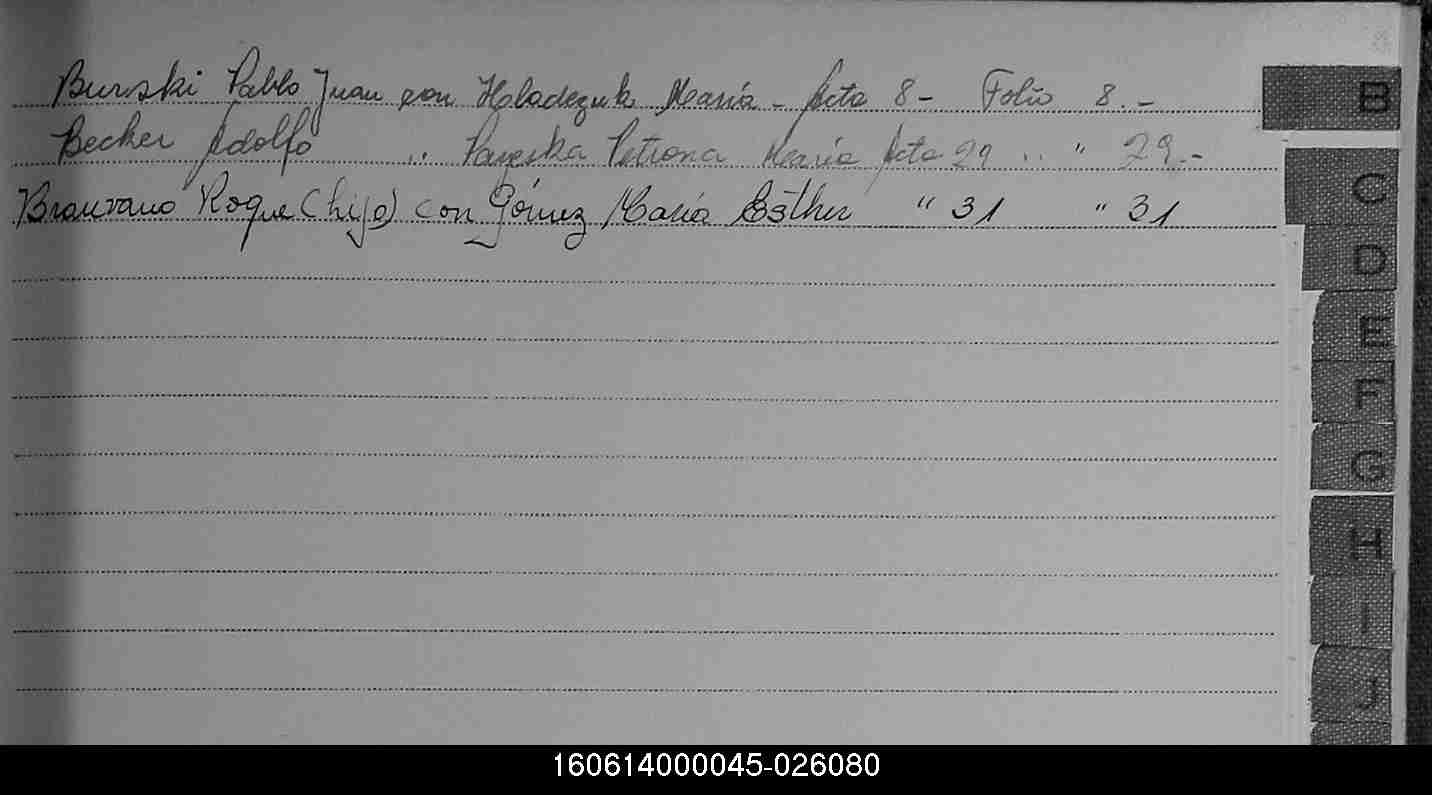 Burski Pablo Juan con Holadezuk María - Acta 8 - Folio 8. -
Becker Adolfo .. Petrona María Acta 29 .. " 29.-
Roque (hijo) con Gómez María Esther " 31 " 31
B
C
D
E
F
G
H
I
J
160614000045-026080